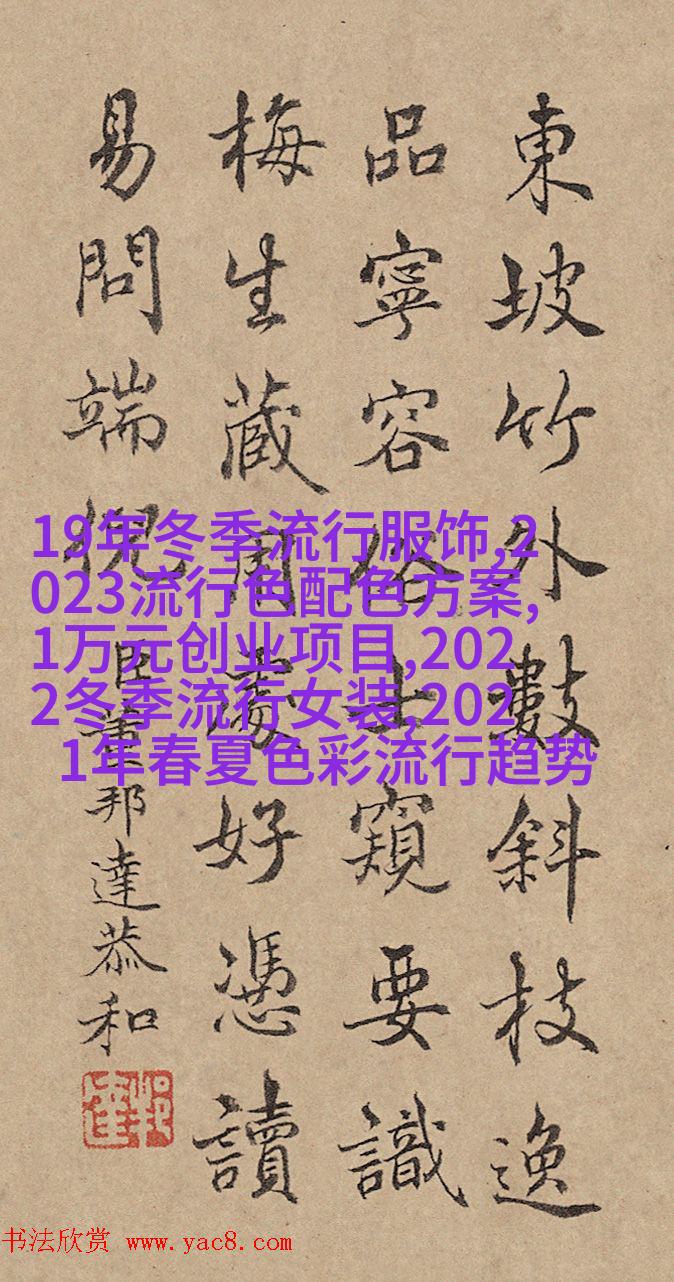 東坡竹外數斜枝逸
品寧容俗士窺要識
梅生藏用處好憑讀
易問端倪
臣董邦達恭和
19年冬季流行服饰,2
023流行色配色方案,
1万元创业项目,202
2冬季流行女装,202
1年春夏色彩流行趋势
书法欣赏 www.yac8.com